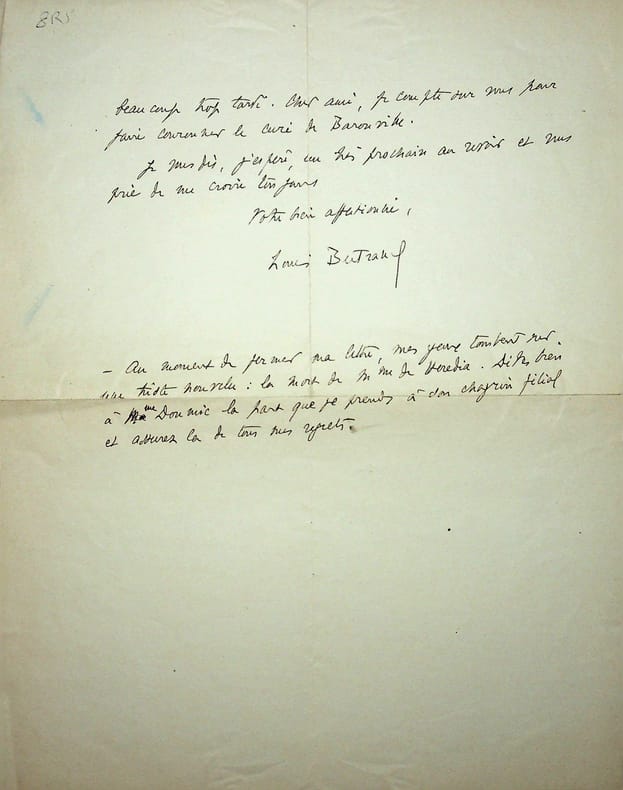 BRS
beaucoup trop tardé. Cher ami, je compte sur vous pour
faire couronner le curé de Baronville.
Je vous dis, j'espère, un très prochain au revoir et vous
prie de me croire toujours
Votre bien affectionné,
Louis Bertrand
– Au moment de fermer ma lettre, mes yeux tombent sur
une triste nouvelle : la mort de Mme de Heredia. Dites bien
à Mme Doumic la part que je prends à son chagrin filial
et assurez la de tous mes regrets.